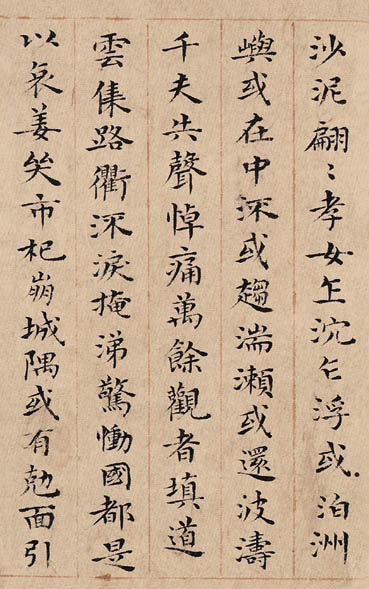 沙泥翩〻孝女乍沈乍浮或泊洲
嶼或在中流或趨湍瀨或還波濤
千夫失聲悼痛萬餘觀者填道
雲集路衢流淚掩涕驚慟國都是
以哀姜哭市杞崩城隅或有勊面引